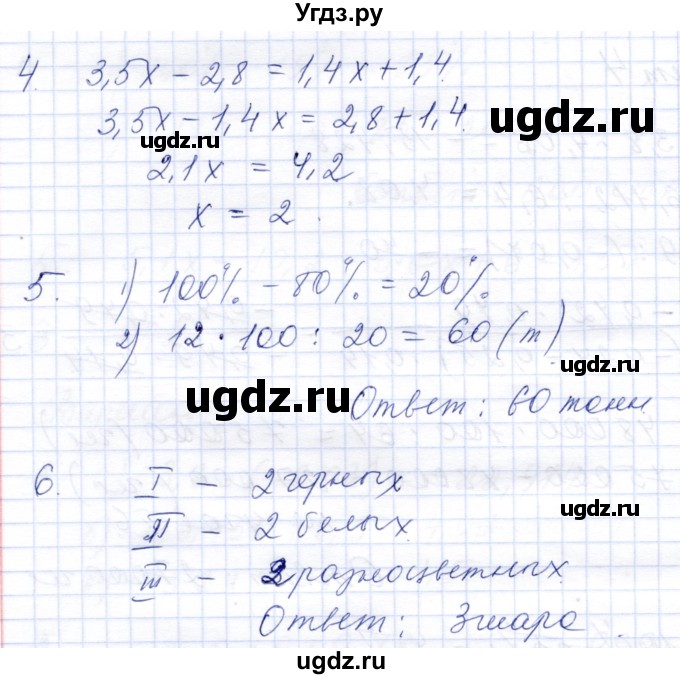 Угдз.ру
4. 3,5x − 2,8 = 1,4x + 1,4.
3,5x − 1,4x = 2,8 + 1,4.
ugdz.ru
ugdz.ru
2,1x = 4,2
x = 2.
5. 1) 100% − 80% = 20%
2) 12 · 100 : 20 = 60 (т)
ugdz.ru
ugdz.ru
Ответ: 60 тонн
6. I − 2 черных
II − 2 белых
III − 2 разноцветных
ugdz.ru
Ответ: 3 шара.
ugdz.ru